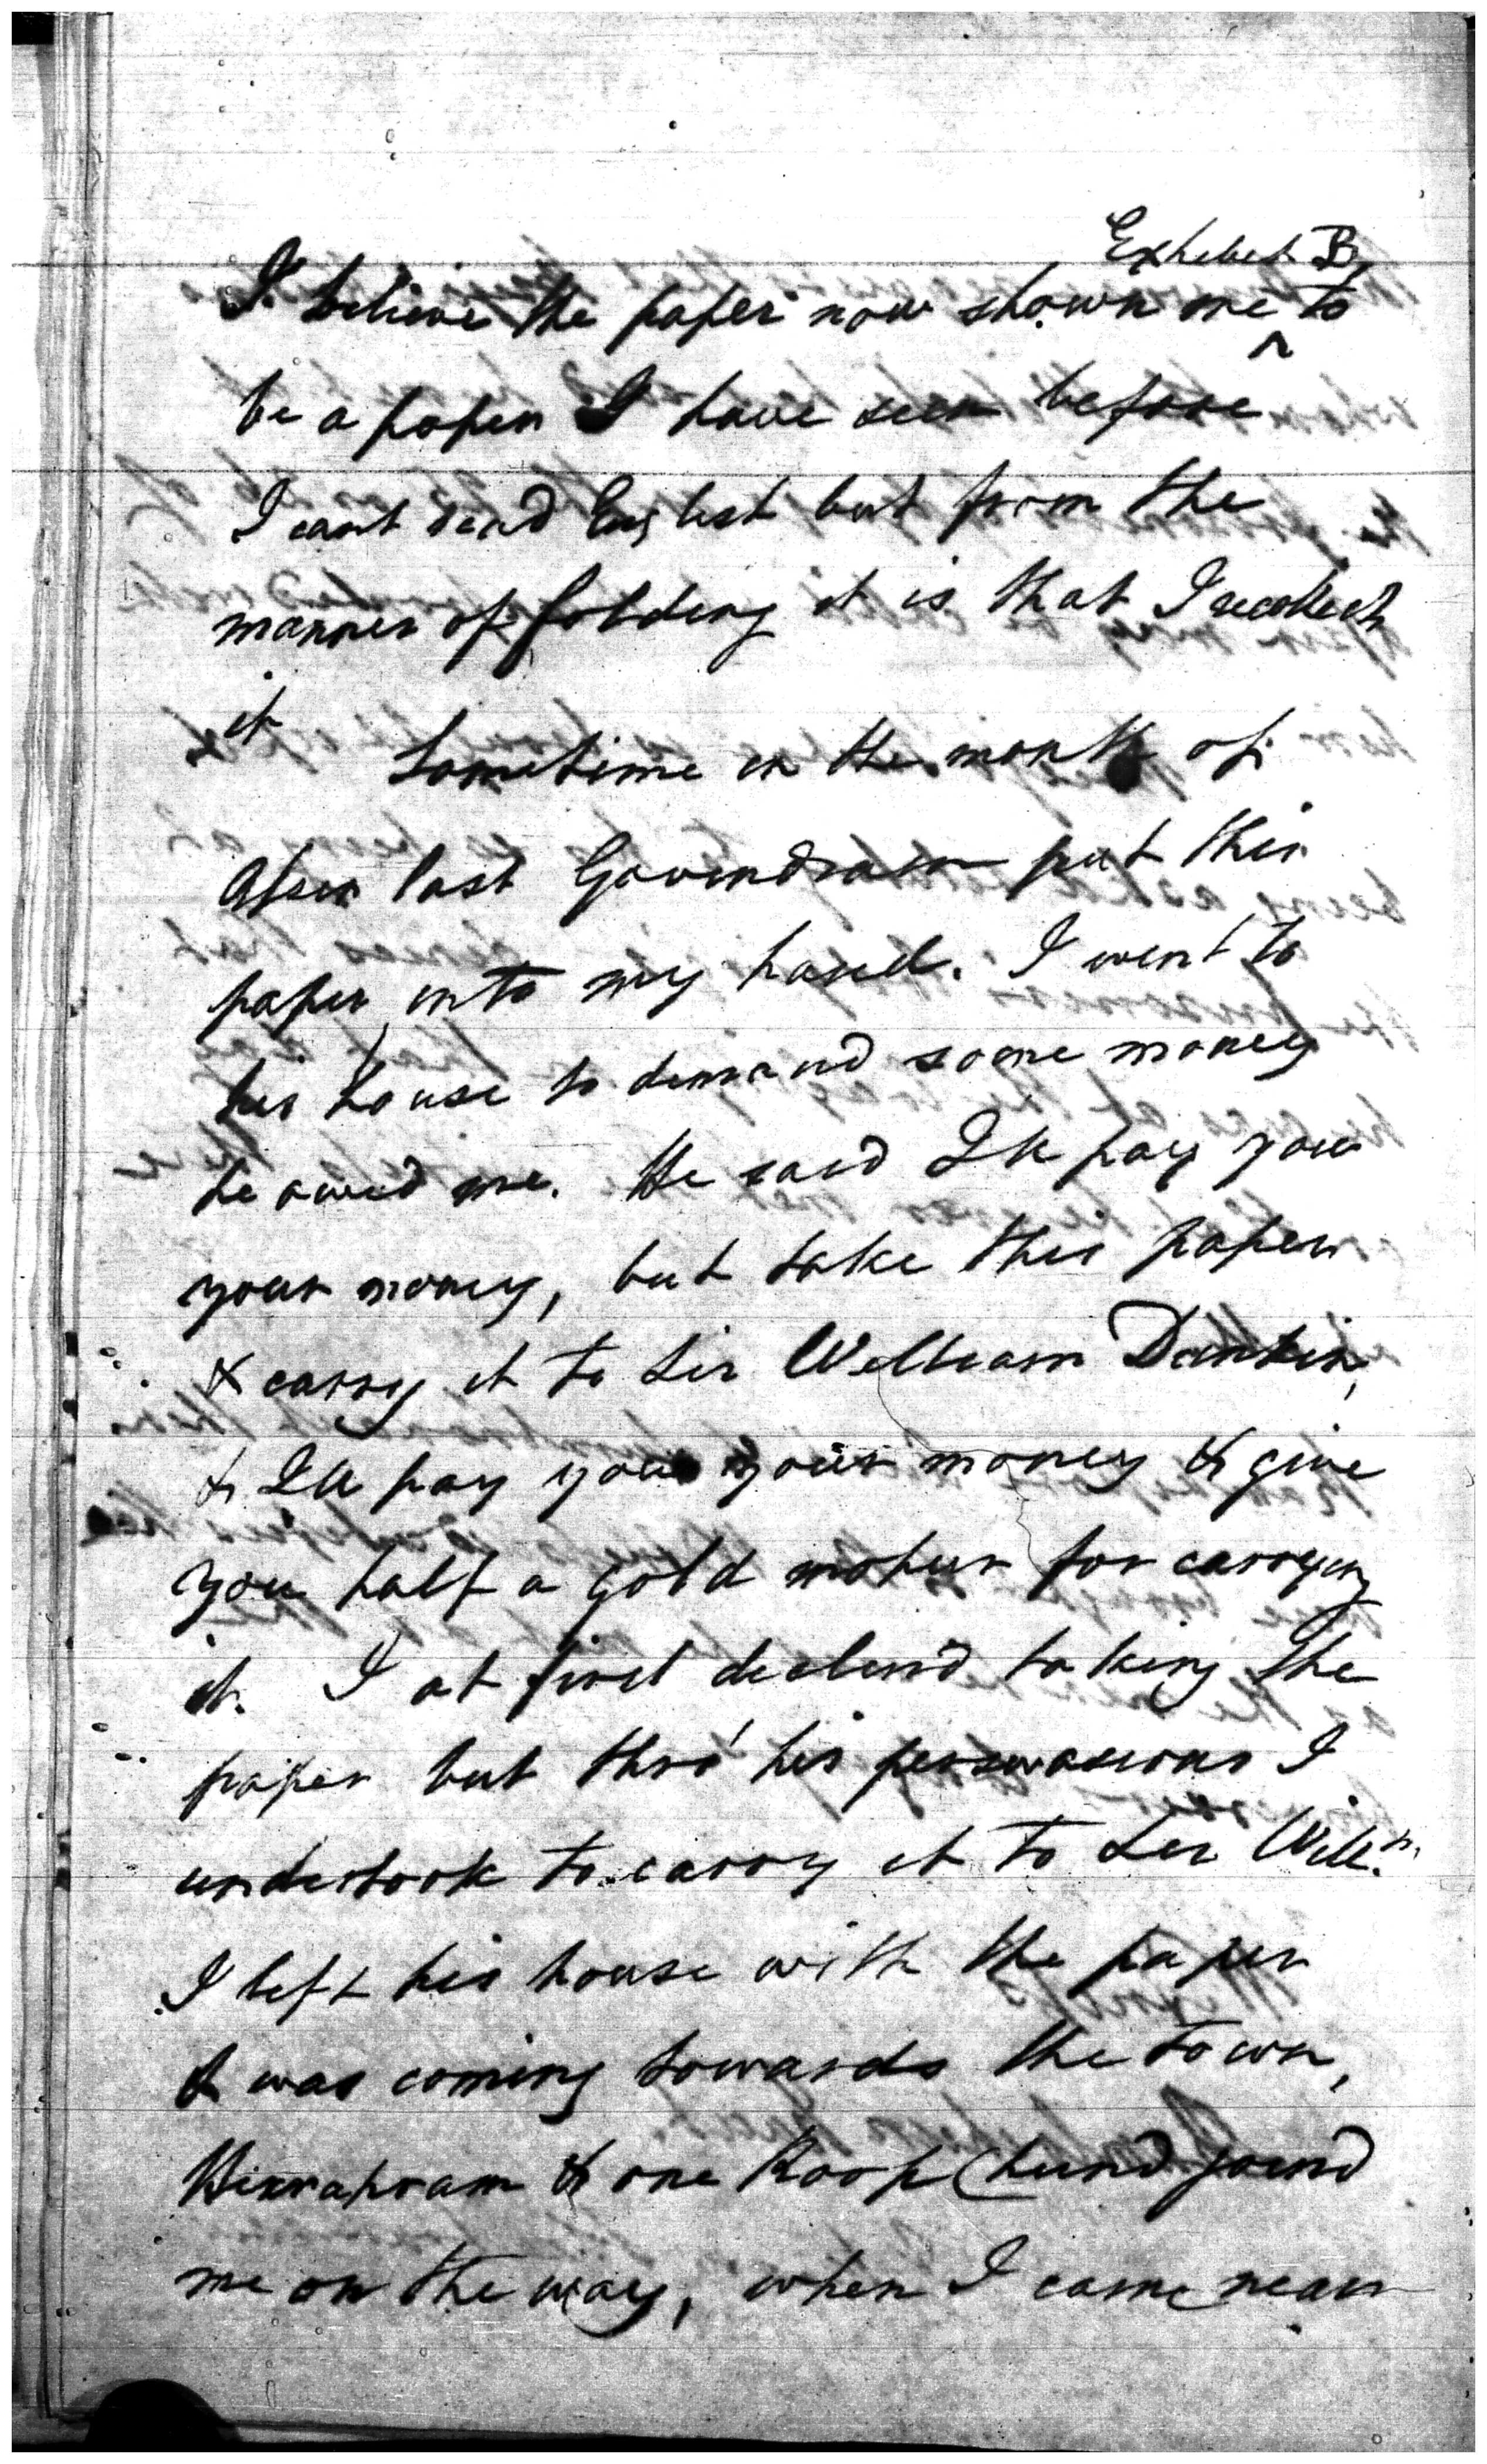 Exhibit B
I believe the paper now shown me ^ to
be a paper I have seen before
I cant read English but from the
manner of folding it is that I recollect
it
Sometime in the month of
Assin last Govindram put this
paper into my hand. I went to
his house to demand some money
he owed me. He said I'll pay you
your money, but take this paper
& carry it to Sir William Dunkin,
& I'll pay you your money & give
you half a gold mohur for carrying
it. I at first declin'd taking the
paper but thro' his perswasions I
undertook to carry it to Sir Will.m
I left his house with the paper
& was coming towards the town,
& one Roop Chund joind
me on the way, when I came near